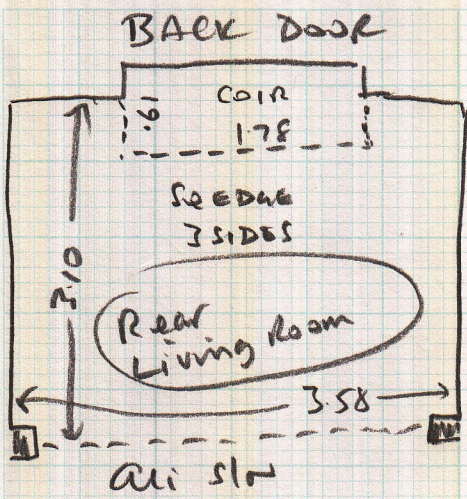 BACK DOOR
COIR
.61
1.78
SQ EDGE
3 SIDES
3.10
Rear
Living Room
3.58
Ali S/N